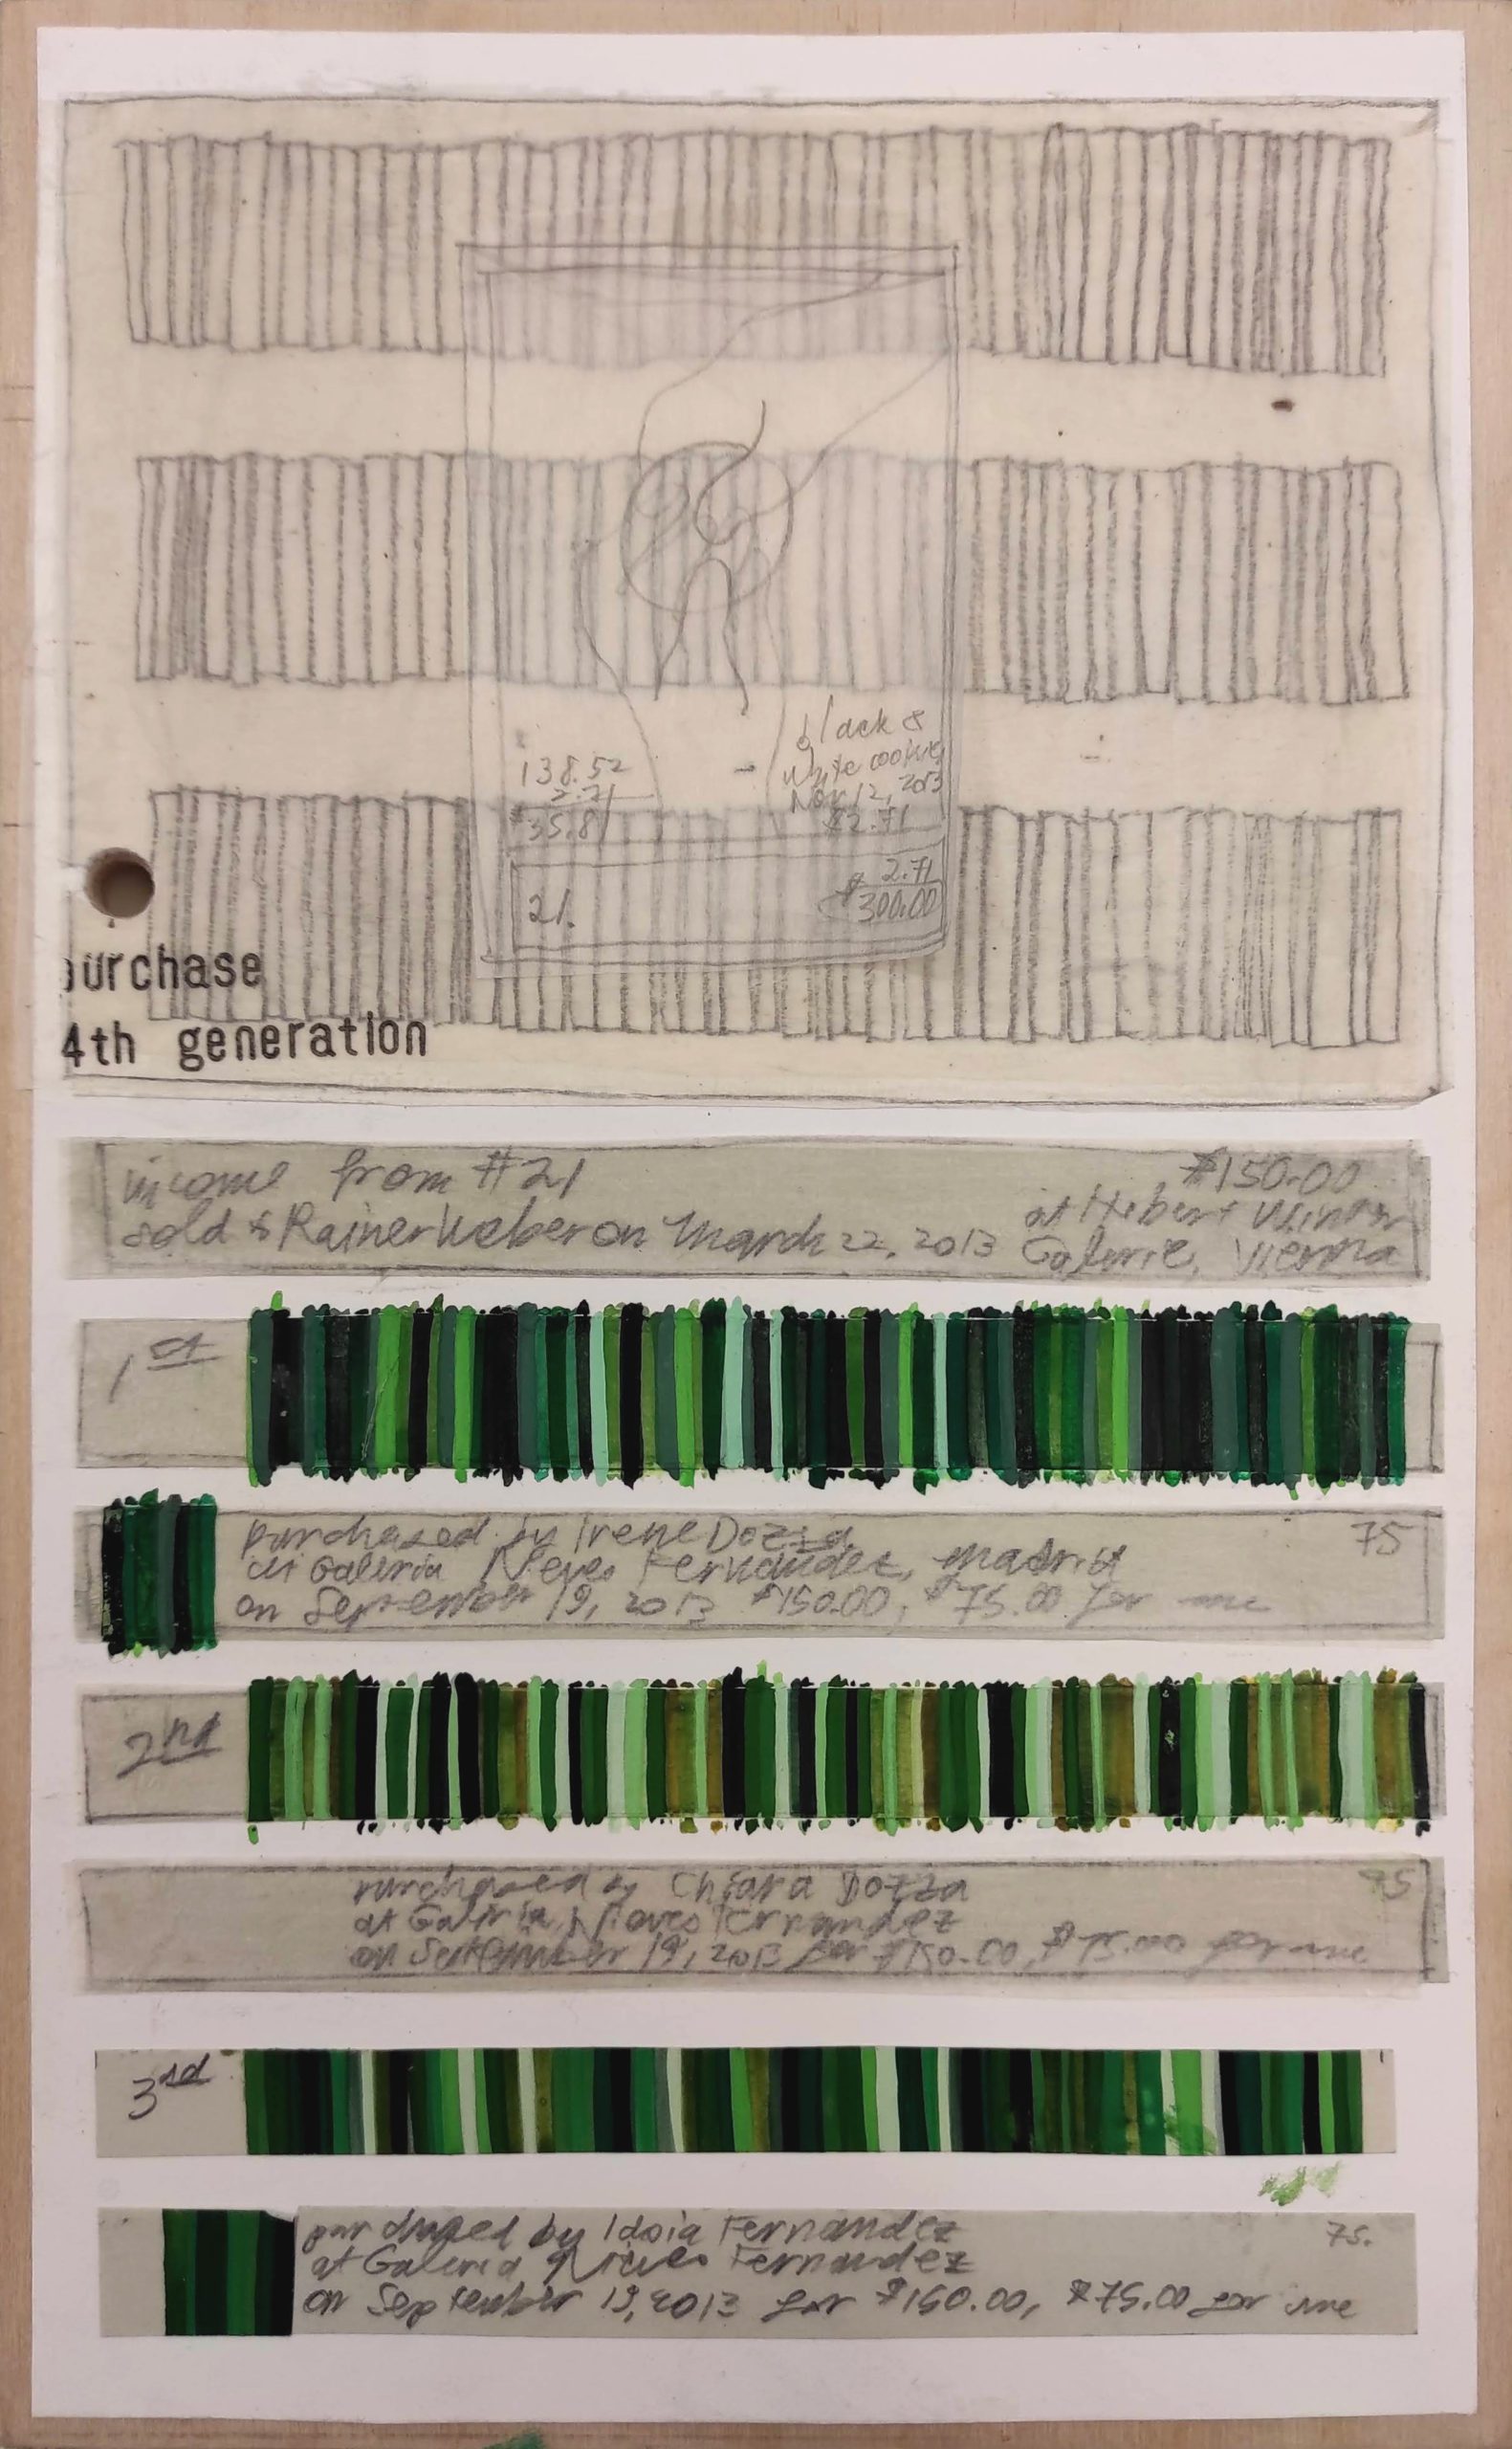 black &
white cookie
Nov 12, 2013
$2.71
138.52
2.71
$35.81
$2.71
21.
$300.00
purchase
4th generation
income from #21
$150.00
sold to Rainer Weber on March 22, 2013
at Hubert Winter
Galerie, Vienna
1st
purchased by Irene Dozza
75
at Galeria Nieves Fernandez, Madrid
on September 19, 2013 $150.00, $75.00 for me
2nd
purchased by Chiara Dozza
75
at Galeria Nieves Fernandez
on September 19, 2013 for $150.00, $75.00 for me
3rd
purchased by Idoia Fernandez
75.
at Galeria Nieves Fernandez
on September 19, 2013 for $150.00, $75.00 for me